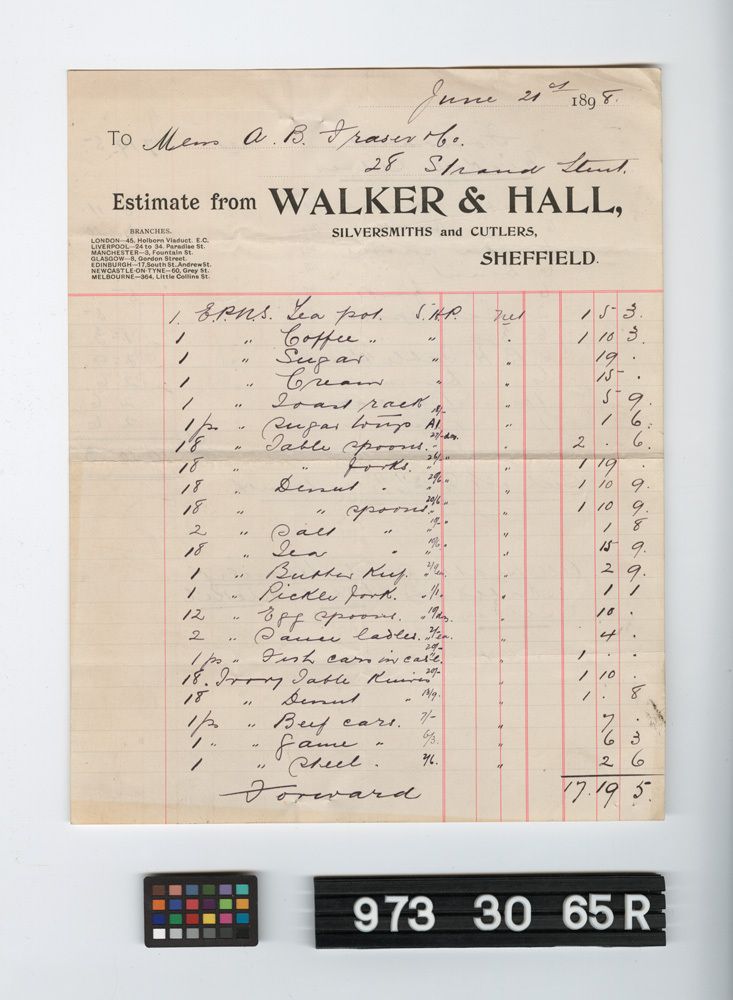 June 21st 1898.
To Mess A. B. Fraser & Co.
28 Strand Street.
Estimate from WALKER & HALL,
SILVERSMITHS and CUTLERS,
SHEFFIELD.
BRANCHES.
LONDON—45, Holborn Viaduct. E.C.
LIVERPOOL—24 to 34. Paradise St.
MANCHESTER—3, Fountain St.
GLASGOW—8, Gordon Street.
EDINBURGH—17, South St. Andrew St.
NEWCASTLE-ON-TYNE—60, Grey St.
MELBOURNE—364, Little Collins St.
1. E.P.N.S. Tea pot. S.H.P. Net 1 5 3.
1 " Coffee " " . 1 10 3
1 " Sugar " " 19 .
1 " Cream " " 15 .
1 " Toast rack " 5 9.
1 ps " Sugar tongs A1 18/- " 1 6.
18 " Table spoons. " 27/- doz. . 2 . 6.
18 " " forks. " 26/- " 1 19 .
18 " Dessert " " 20/6 " " 1 10 9.
18 " " spoons " 20/6 " " 1 10 9.
2 " Salt " " " " 1 8
18 " Tea " " 10/6 " " 15 9.
1 " Butter Knf. " 2/9 ea. " 2 9.
1 " Pickle fork. " 1/1 " 1 1
12 " Egg spoons. " 10/- doz. " 10 .
2 " Sauce ladles. " 2/- ea. " 4 .
1 ps " Fish cars in case. 20/- " 1 . .
18. Ivory Table Knives 20/- " 1 10 .
18 " Dessert " 13/9. " 1 . 8
1 ps " Beef cars. 7/- " 7 .
1 " " Game " 6/3. " 6 3
1 " Steel . 2/6. " 2 6
Forward 17. 19 5.
973 30 65R